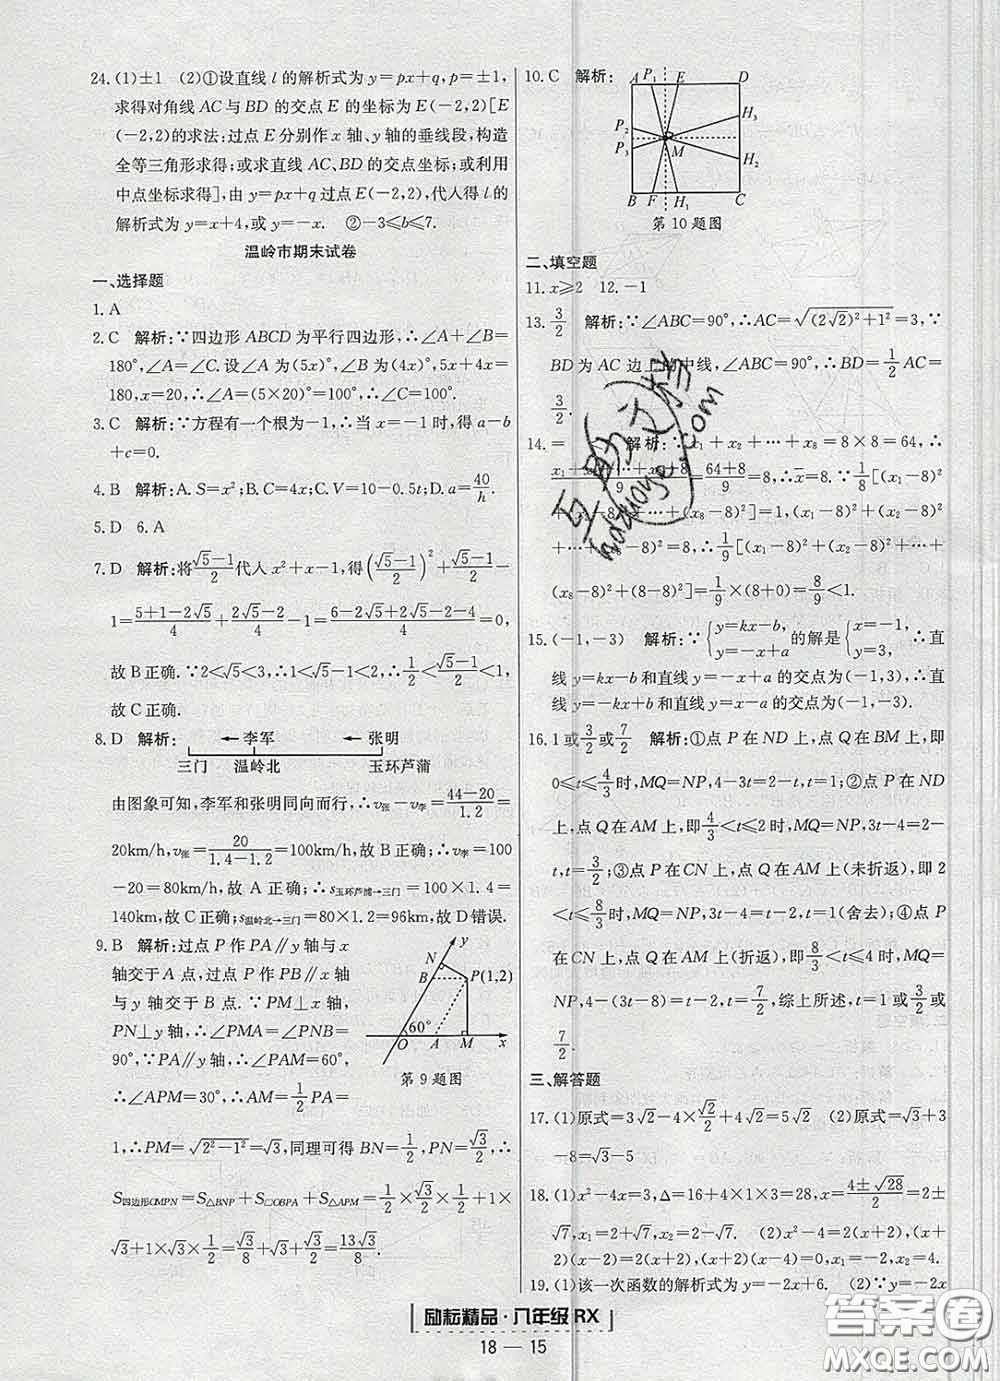 24. (1)±1　(2)①设直线 l 的解析式为 y=px+q,p=±1,
求得对角线 AC 与 BD 的交点 E 的坐标为 E(-2,2)[E
(-2,2)的求法:过点 E 分别作 x 轴、y 轴的垂线段,构造
全等三角形求得;或求直线 AC、BD 的交点坐标;或利用
中点坐标求得],由 y=px+q 过点 E(-2,2),代人得 l 的
解析式为 y=x+4,或 y=-x.　②-3≤b≤7.
温岭市期末试卷
一、选择题
1. A
2. C　解析:∵四边形 ABCD 为平行四边形,∴∠A+∠B=
180°,∠A=∠C.设∠A 为(5x)°,∠B 为(4x)°,5x+4x=
180,x=20,∴∠A=(5×20)°=100°,∴∠C=100°.
3. C　解析:∵方程有一个根为-1,∴当 x=-1 时,得 a-b
+c=0.
4. B　解析:A. S=x²;B. C=4x;C. V=10-0.5t;D. a=40/h.
5. D　6. A
7. D　解析:将(√5-1)/2代人 x²+x-1,得((√5-1)/2)²+(√5-1)/2-
1=(5+1-2√5)/4+(2√5-2)/4-1=(6-2√5+2√5-2-4)/4=0,
故 B 正确.∵2<√5<3,∴1<√5-1<2,∴1/2<(√5-1)/2<1,
故 C 正确.
8. D　解析:
←李军　←张明
三门　温岭北　玉环芦蒲
由图象可知,李军和张明同向而行,∴v张-v李=(44-20)/1.2=
20km/h,v张=20/(1.4-1.2)=100km/h,故 B 正确;∴v李=100
-20=80km/h,故 A 正确;∴s玉环芦蒲→三门=100×1.4=
140km,故 C 正确;s温岭北→三门=80×1.2=96km,故 D 错误.
9. B　解析:过点 P 作 PA∥y 轴与 x
轴交于 A 点,过点 P 作 PB∥x 轴
与 y 轴交于 B 点.∵PM⊥x 轴,
PN⊥y 轴,∴∠PMA=∠PNB=
90°,∵PA∥y 轴,∴∠PAM=60°,
∴∠APM=30°,∴AM=1/2 PA=
1,∴PM=√(2²-1²)=√3,同理可得 BN=1/2,PN=√3/2,∴
S四边形OMPN=S△BNP+S▱OBPA+S△APM=1/2×√3/2×1/2+1×
√3+1×√3×1/2=√3/8+√3+√3/2=13√3/8.
N　y　B　P(1,2)　60°　O　A　M　x
第 9 题图
10. C　解析:
A　P₁　E　D　H₃　P₂　P₃　M　H₂　B　F　H₁　C
第 10 题图
二、填空题
11. x≥2　12. -1
13. 3/2　解析:∵∠ABC=90°,∴AC=√((2√2)²+1²)=3,∵
BD 为 AC 边上的中线,∠ABC=90°,∴BD=1/2 AC=
3/2.
14. =　<　解析:∵x₁+x₂+…+x₈=8×8=64,∴
(x₁+x₂+…+x₈+8)/9=(64+8)/9=8,∴x̄=8.∵1/8[(x₁-8)²
+(x₂-8)²+…+(x₈-8)²]=1,∴(x₁-8)²+(x₂-8)²
+…+(x₈-8)²=8,∴1/9[(x₁-8)²+(x₂-8)²+…+
(x₈-8)²+(8-8)²]=1/9×(8+0)=8/9<1.
15. (-1,-3)　解析:∵{y=kx-b, y=-x+a 的解是{x=-1, y=3, ∴直
线 y=kx-b 和直线 y=-x+a 的交点为(-1,3),∴直线
y=-kx+b 和直线 y=x-a 的交点为(-1,-3).
16. 1 或3/2或7/2　解析:①点 P 在 ND 上,点 Q 在 BM 上,即
0≤t≤4/3时,MQ=NP,4-3t=2-t,t=1;②点 P 在 ND
上,点 Q 在 AM 上,即4/3<t≤2 时,MQ=NP,3t-4=2-
t,t=3/2;③点 P 在 CN 上,点 Q 在 AM 上(未折返),即 2
<t≤8/3时,MQ=NP,3t-4=t-2,t=1(舍去);④点 P
在 CN 上,点 Q 在 AM 上(折返),即8/3<t≤4 时,MQ=
NP,4-(3t-8)=t-2,t=7/2,综上所述,t=1 或3/2或
7/2.
三、解答题
17. (1)原式=3√2-4×√2/2+4√2=5√2　(2)原式=√3+3
-8=√3-5
18. (1)x²-4x=3,Δ=16+4×1×3=28,x=(4±√28)/2=2±
√7,x₁=2+√7,x₂=2-√7.　(2)x²-4=2(x+2),(x+
2)(x-2)=2(x+2),(x+2)(x-4)=0,x₁=-2,x₂=4.
19. (1)该一次函数的解析式为 y=-2x+6.　(2)∵y=-2x
励耘精品·八年级 RX
18 — 15
互助文档
hdzuoye.com
答案圈
MXQE.COM